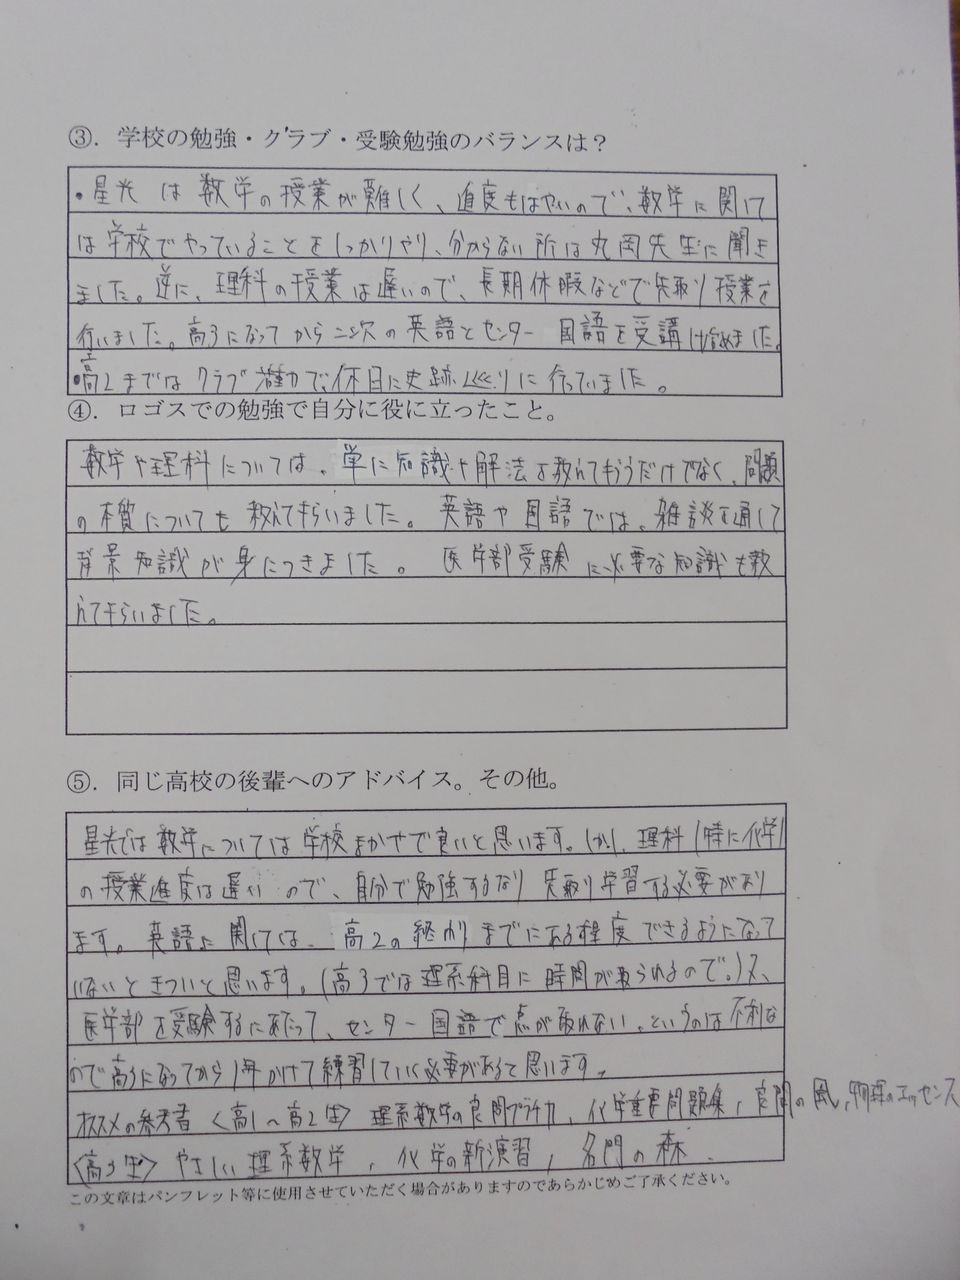 ③．学校の勉強・クラブ・受験勉強のバランスは？
・星光は数学の授業が難しく、進度もはやいので、数学に関して
は学校でやっていることをしっかりやり、分からない所は丸岡先生に聞き
ました。逆に、理科の授業は遅いので、長期休暇などで先取り授業を
行いました。高3になってから二次の英語とセンター国語を受講し始めました。
・高2まではクラブ活動で、休日に史跡巡りに行っていました。
④．ロゴスでの勉強で自分に役に立ったこと。
数学や理科については、単に知識や解法を教えてもらうだけでなく、問題
の本質についても教えてもらいました。英語や国語では、雑談を通して
背景知識が身につきました。医学部受験に必要な知識も教
えてもらいました。
⑤．同じ高校の後輩へのアドバイス。その他。
星光では数学については学校まかせで良いと思います。しかし、理科(特に化学)
の授業進度は遅いので、自分で勉強するなり先取り学習する必要があり
ます。英語に関しては、高2の終わりまでにある程度できるようになって
いないときついと思います。(高3では理系科目に時間が取られるので。)又、
医学部を受験するにあたって、センター国語で点が取れない、というのは不利な
ので高3になってから1年かけて練習していく必要があると思います。
オススメの参考書〈高1〜高2生〉理系数学の良問プラチカ，化学重要問題集，良問の風，物理のエッセンス
〈高3生〉やさしい理系数学，化学の新演習，名門の森．
この文章はパンフレット等に使用させていただく場合がありますのであらかじめご了承ください。